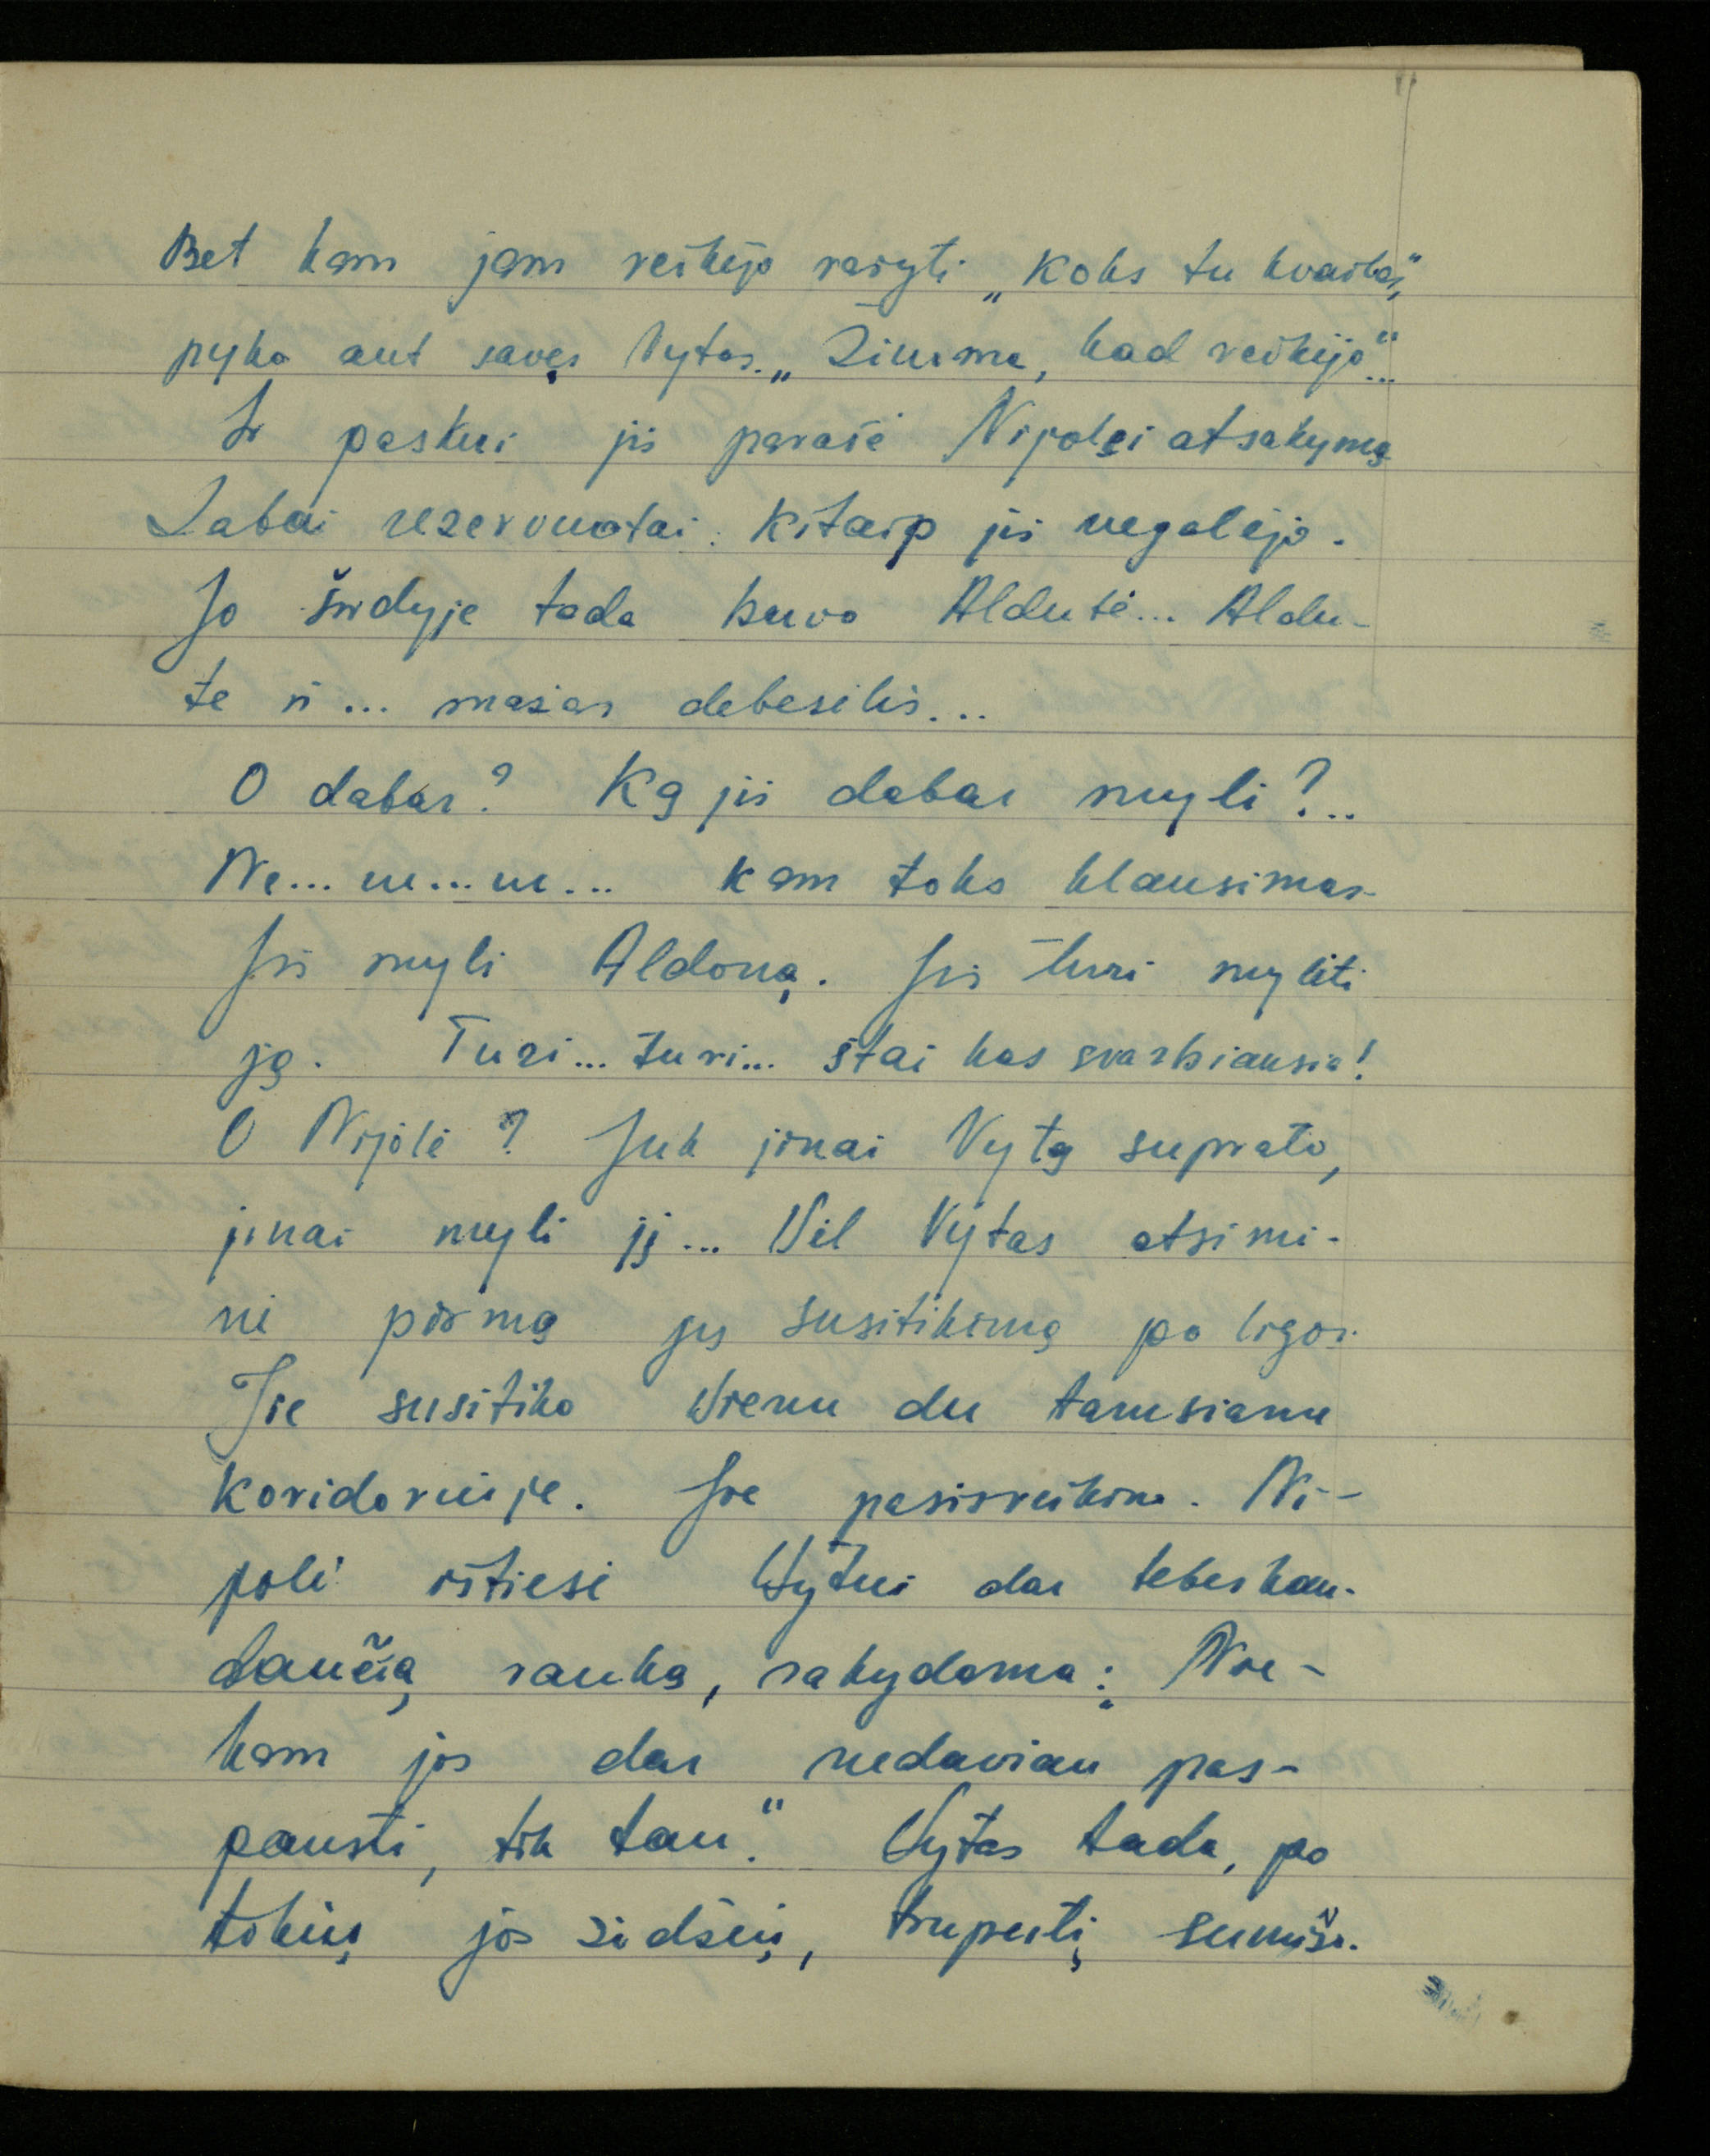 Bet kam jam reikėjo rašyti „Koks tu kvailas“,
pyko ant savęs Vytas. „Žinoma, kad reikėjo“...
Ir paskui jis parašė Nijolei atsakymą
Labai rezervuotai. Kitaip jis negalėjo.
Jo širdyje tada buvo Aldutė... Aldu-
te ir... mažas debesėlis...
O dabar? Ką jis dabar myli?..
Ne... ne... ne... kam toks klausimas.
Jis myli Aldoną. Jis turi mylėti
ją. Turi... turi... štai kas svarbiausia!
O Nijolė? Juk jinai Vytą suprato,
jinai myli jį... Vėl Vytas atsimi-
nė pirmą jų susitikimą po ligos.
Jie susitiko vienu du tamsiame
koridoriuje. Jie pasisveikino. Ni-
jolė ištiesė Vytui dar tebeskau-
dančią ranką, sakydama: „Nie-
kam jos dar nedaviau pas-
pausti, tik tau.“ Vytas tada, po
tokių jos žodžių, truputį sumišo.